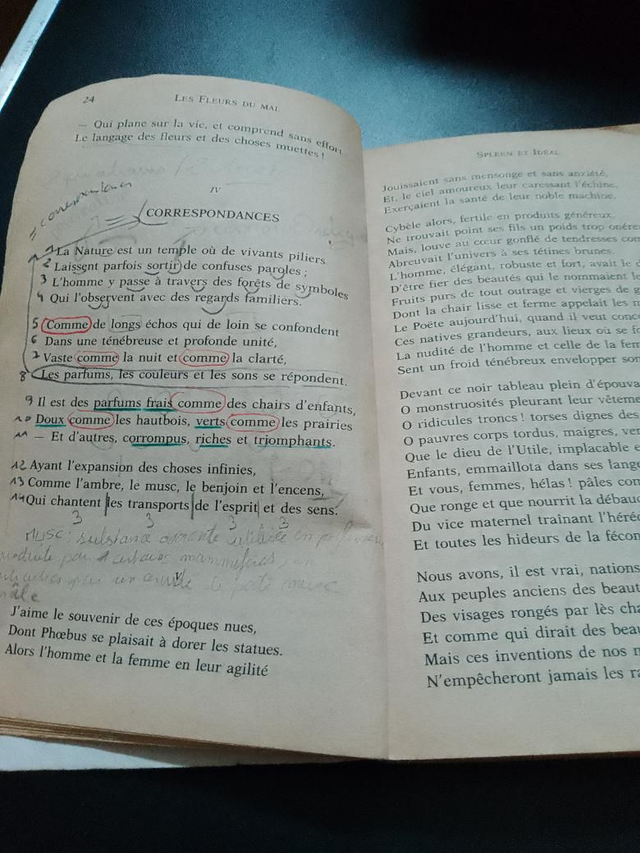 24
LES FLEURS DU MAL
— Qui plane sur la vie, et comprend sans effort
Le langage des fleurs et des choses muettes !
IV
CORRESPONDANCES
1 La Nature est un temple où de vivants piliers
2 Laissent parfois sortir de confuses paroles ;
3 L'homme y passe à travers des forêts de symboles
4 Qui l'observent avec des regards familiers.
5 Comme de longs échos qui de loin se confondent
6 Dans une ténébreuse et profonde unité,
7 Vaste comme la nuit et comme la clarté,
8 Les parfums, les couleurs et les sons se répondent.
9 Il est des parfums frais comme des chairs d'enfants,
10 Doux comme les hautbois, verts comme les prairies
11 — Et d'autres, corrompus, riches et triomphants.
12 Ayant l'expansion des choses infinies,
13 Comme l'ambre, le musc, le benjoin et l'encens,
14 Qui chantent les transports de l'esprit et des sens.
3 3 3 3
Musc : substance odorante utilisée en
par certains mammifères,
J'aime le souvenir de ces époques nues,
Dont Phœbus se plaisait à dorer les statues.
Alors l'homme et la femme en leur agilité
SPLEEN ET IDÉAL
Jouissaient sans mensonge et sans anxiété,
Et, le ciel amoureux leur caressant l'échine,
Exerçaient la santé de leur noble machine.
Cybèle alors, fertile en produits généreux,
Ne trouvait point ses fils un poids trop
Mais, louve au cœur gonflé de tendresses
Abreuvait l'univers à ses tétines brunes.
L'homme, élégant, robuste et fort, avait le
D'être fier des beautés qui le nommaient
Fruits purs de tout outrage et vierges de
Dont la chair lisse et ferme appelait les
Le Poète aujourd'hui, quand il veut
Ces natives grandeurs, aux lieux où se
La nudité de l'homme et celle de la
Sent un froid ténébreux envelopper son
Devant ce noir tableau plein
O monstruosités pleurant leur
O ridicules troncs ! torses dignes des
O pauvres corps tordus, maigres,
Que le dieu de l'Utile, implacable e
Enfants, emmaillota dans ses
Et vous, femmes, hélas ! pâles
Que ronge et que nourrit la
Du vice maternel traînant
Et toutes les hideurs de la
Nous avons, il est vrai, nations
Aux peuples anciens des
Des visages rongés par les
Et comme qui dirait des
Mais ces inventions de nos
N'empêcheront jamais les